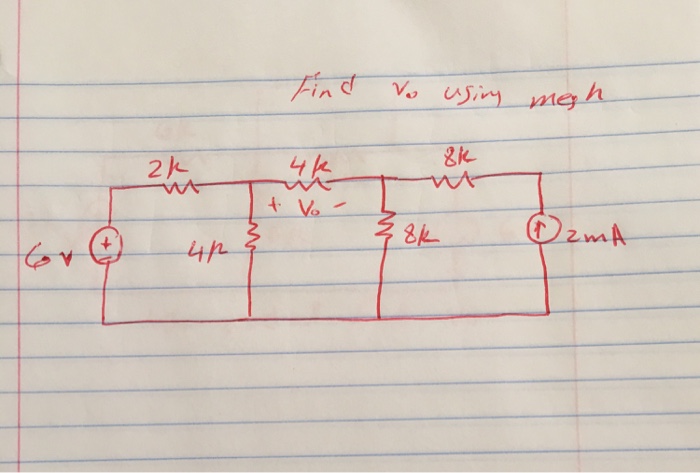 Find Vo using mesh
2k 4k 8k
+ Vo -
6v + 4k 8k 2mA